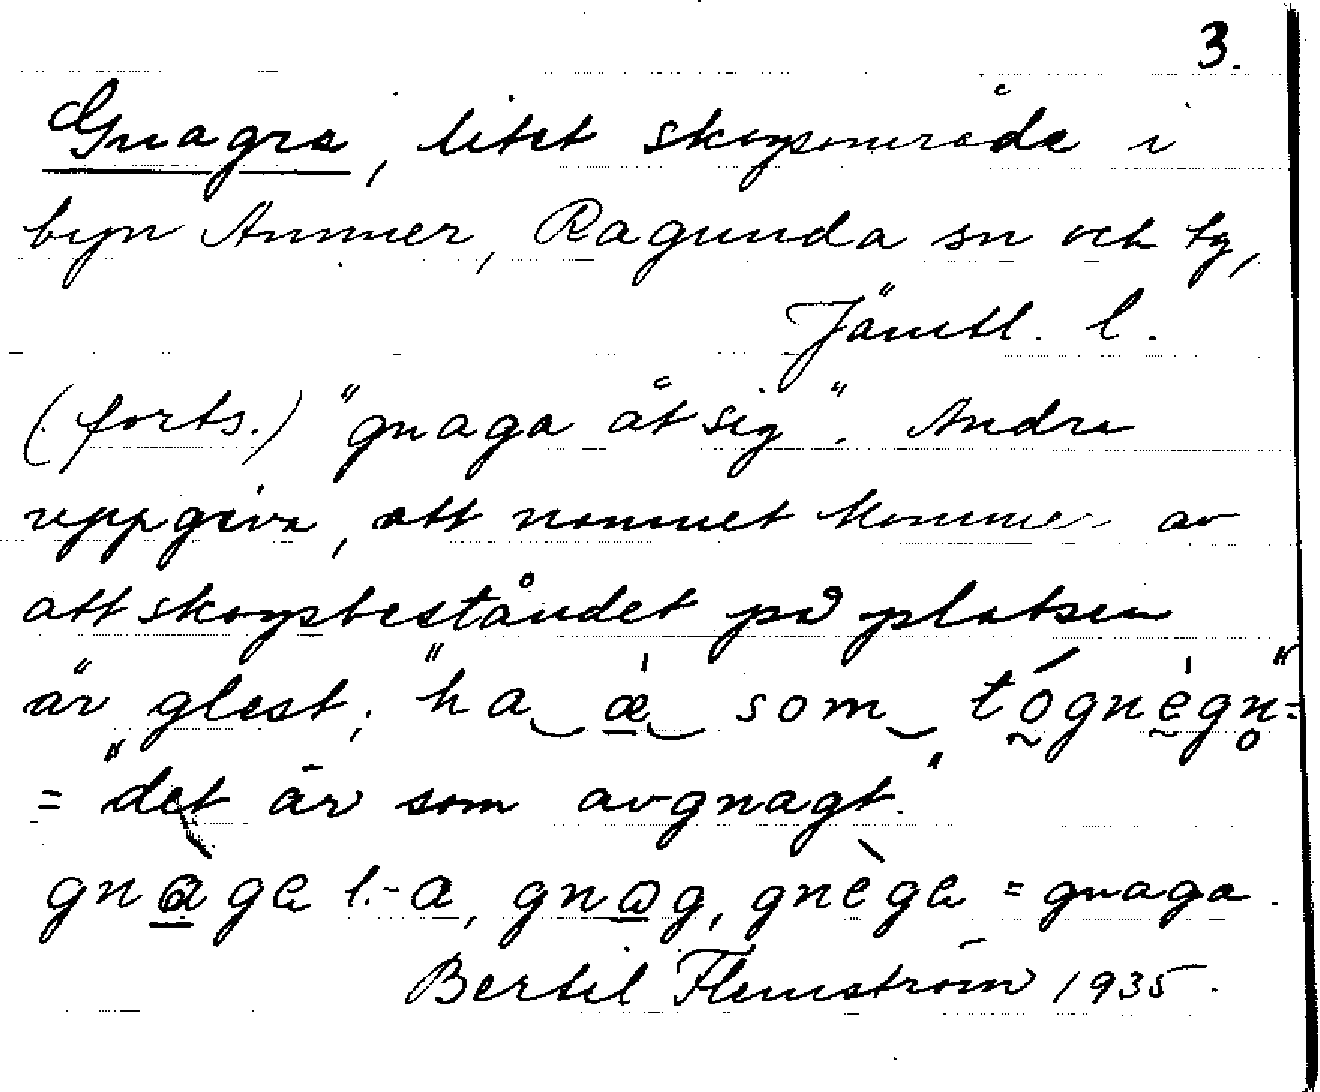 3.
Gnagra, litet skogsområde i
byn Ammer, Ragunda sn och tg,
Jämtl. l.
(forts.) "gnaga åt sig". Andra
uppgiva, att namnet kommer av
att skogsbeståndet på platsen
är glest; "ha æ̀ som tógnègn̥"=
= "det är som avgnagt."
gnàga l. -a, gnog, gnèga = gnaga.
Bertil Flemström 1935.